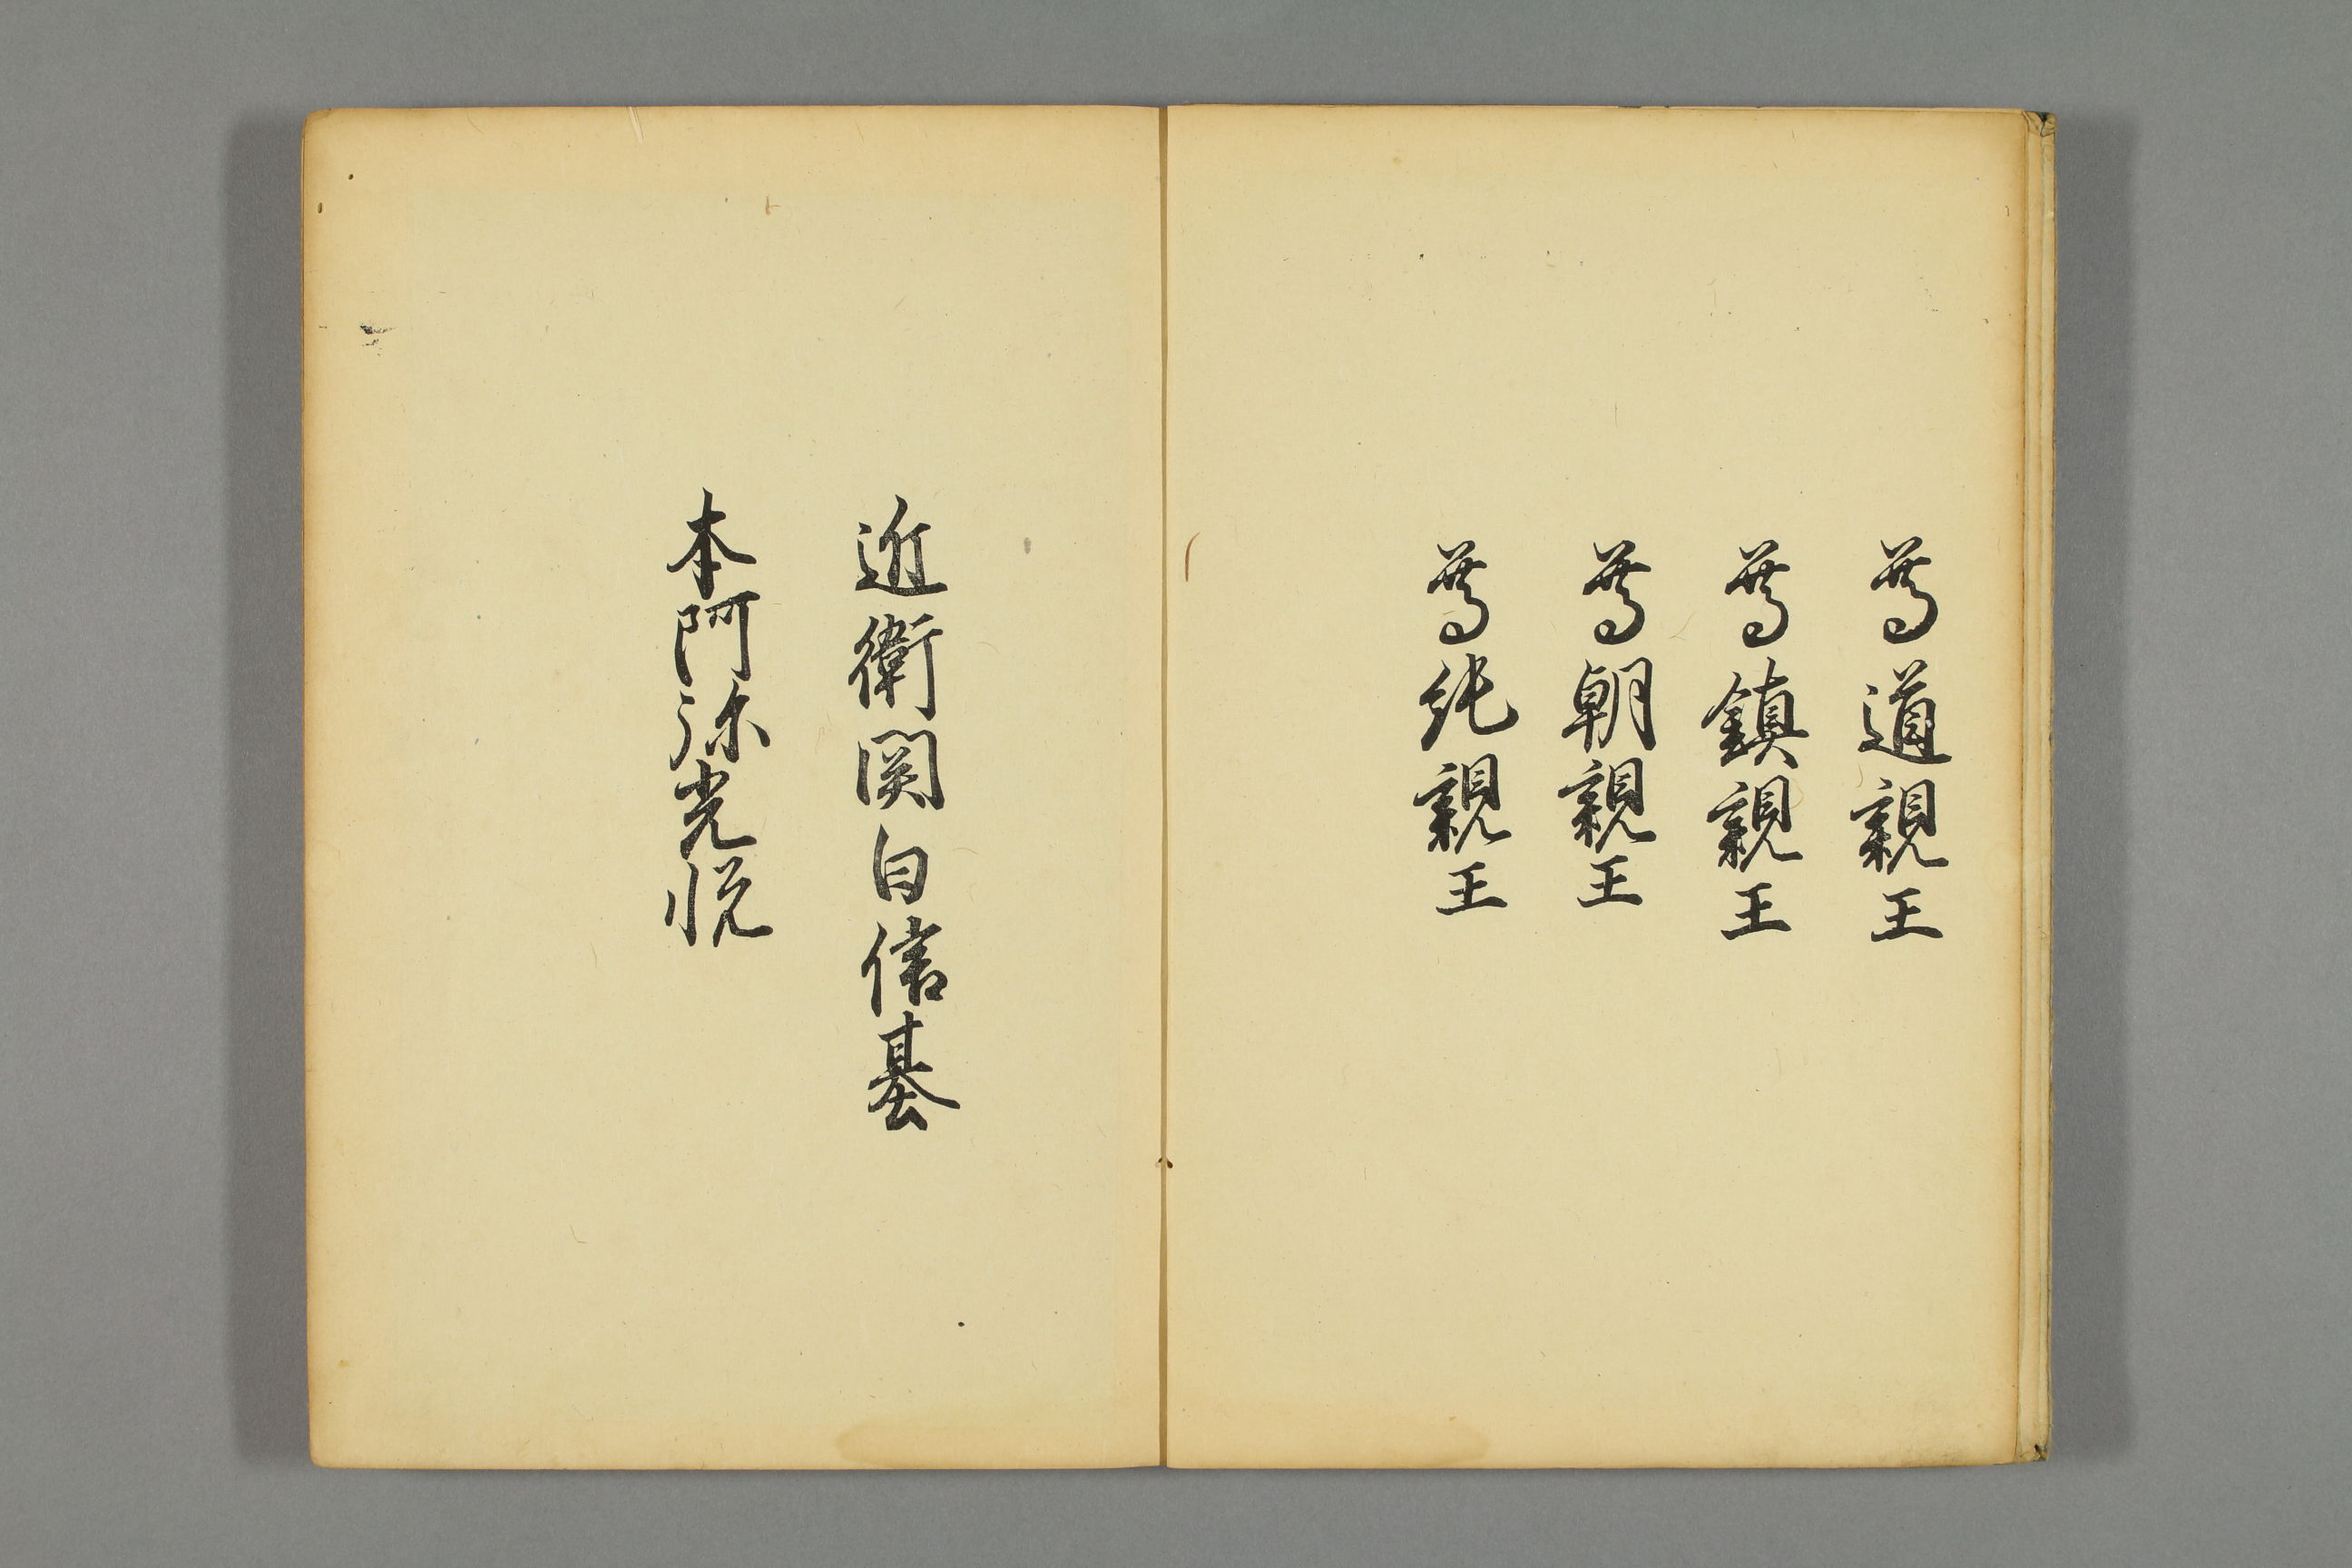 尊道親王
尊鎮親王
尊朝親王
尊純親王
近衛関白信基
本阿弥光悦